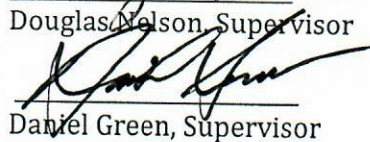 Douglas Nelson, Supervisor
Daniel Green, Supervisor